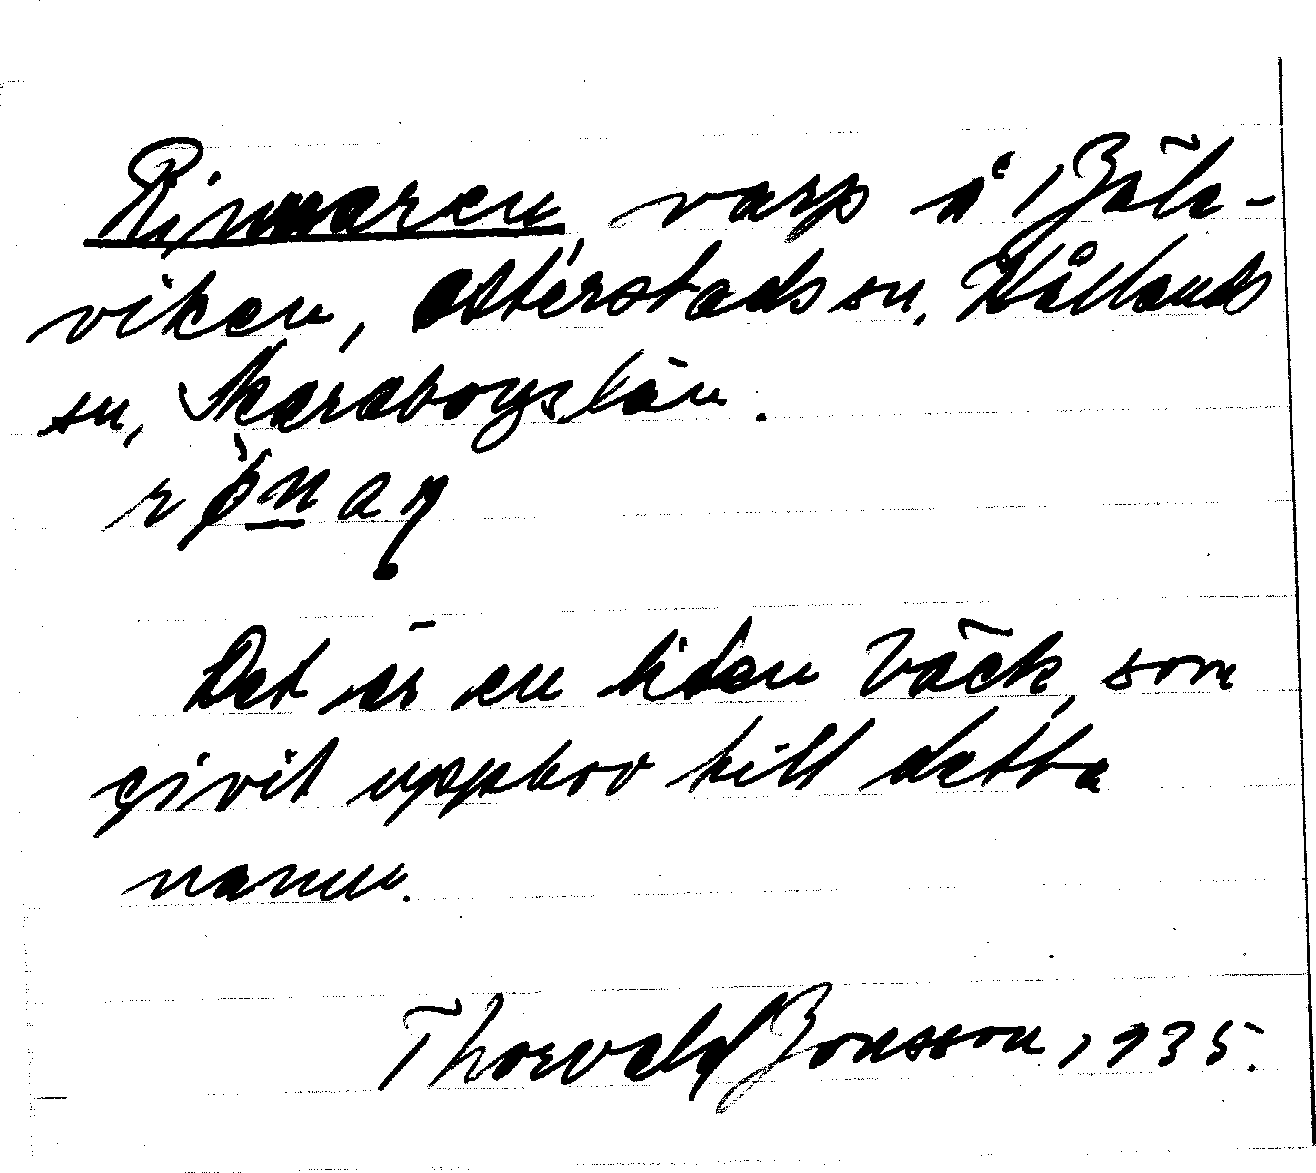 Rinnaren, varp å Bjäla-
viken, Otterstads sn, Kållands
sn, Skaraborgs län.
Det är en liten bäck, som
givit upphov till detta
namn.
Thorvald Jonsson, 1935.